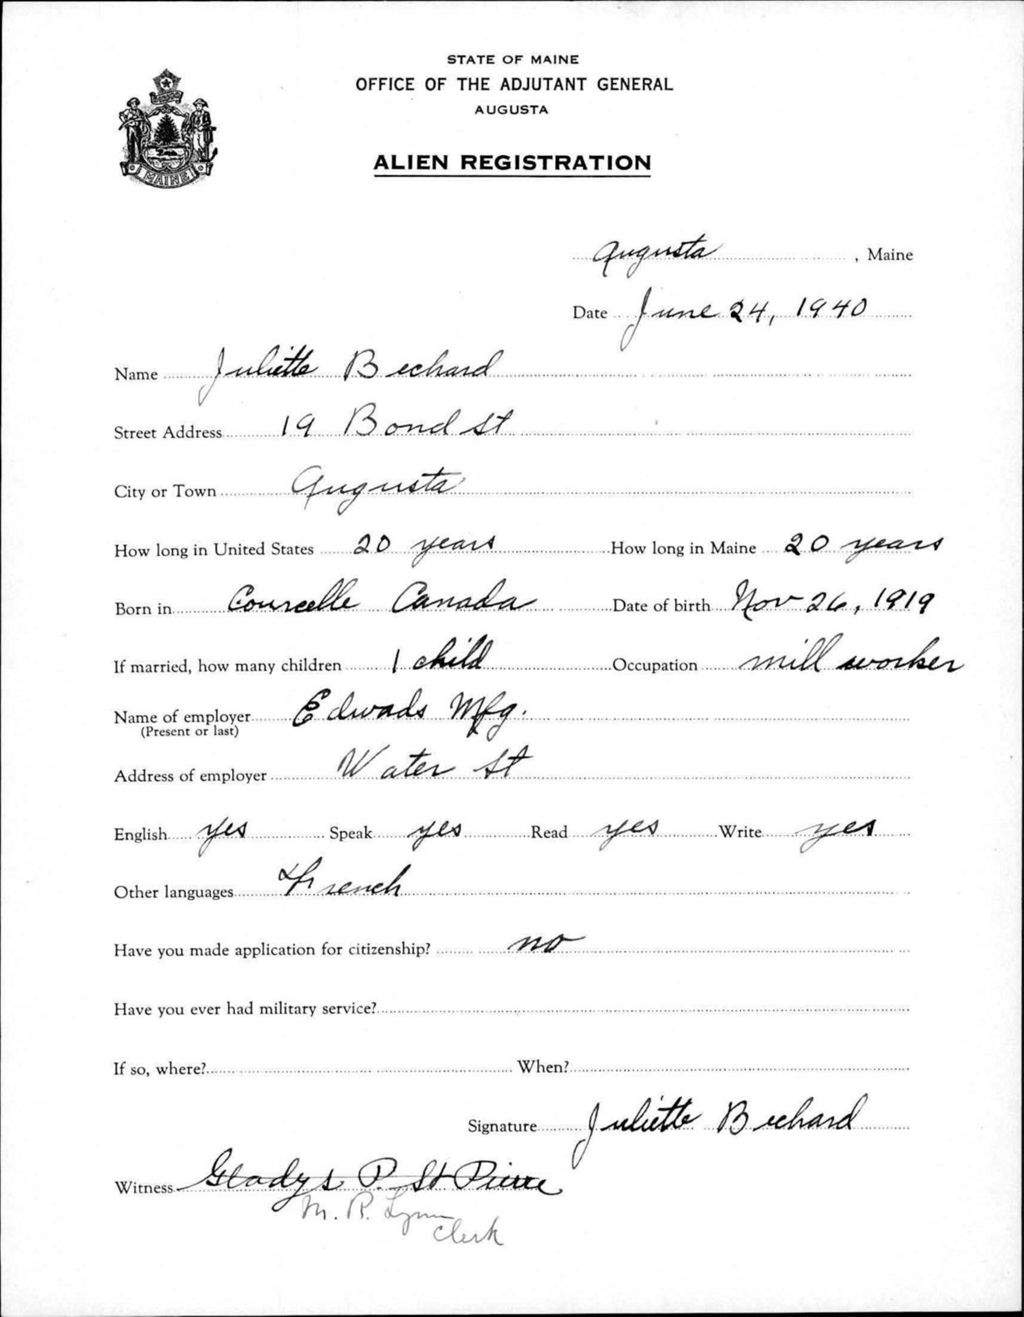 STATE OF MAINE
OFFICE OF THE ADJUTANT GENERAL
AUGUSTA
ALIEN REGISTRATION
MAINE
Augusta, Maine
Date June 24, 1940
Name Juliette Bechard
Street Address 19 Bond St
City or Town Augusta
How long in United States 20 years How long in Maine 20 years
Born in Courcelle Canada Date of birth Nov 26, 1919
If married, how many children 1 child Occupation mill worker
Name of employer Edwads Mfg.
(Present or last)
Address of employer Water St
English yes Speak yes Read yes Write yes
Other languages French
Have you made application for citizenship? no
Have you ever had military service?
If so, where? When?
Signature Juliette Bechard
Witness Gladys P. St Pierre
M. R. Lynn
Clerk